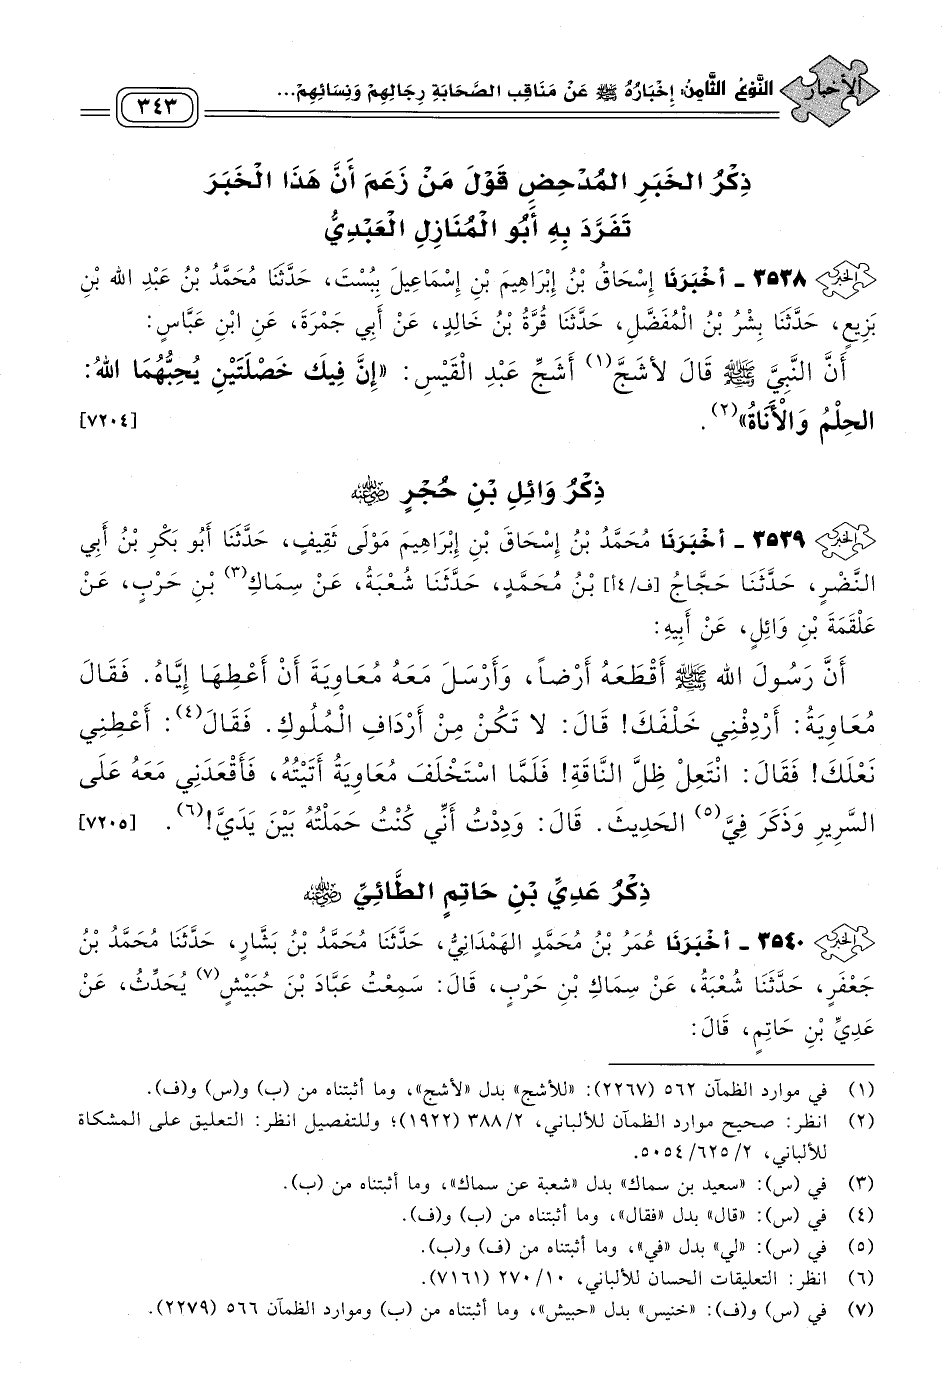 الأخبار
النَّوْعُ الثَّامِنُ: إِخْبَارُهُ ﷺ عَنْ مَنَاقِبِ الصَّحَابَةِ رِجَالِهِمْ وَنِسَائِهِمْ...
٣٤٣
ذِكْرُ الخَبَرِ المُدْحِضِ قَوْلَ مَنْ زَعَمَ أَنَّ هَذَا الْخَبَرَ
تَفَرَّدَ بِهِ أَبُو الْمُنَازِلِ الْعَبْدِيُّ
الخبر ٣٥٣٨ - أَخْبَرَنَا إِسْحَاقُ بْنُ إِبْرَاهِيمَ بْنِ إِسْمَاعِيلَ بِبُسْتَ، حَدَّثَنَا مُحَمَّدُ بْنُ عَبْدِ الله بْنِ
بَزِيعٍ، حَدَّثَنَا بِشْرُ بْنُ الْمُفَضَّلِ، حَدَّثَنَا قُرَّةُ بْنُ خَالِدٍ، عَنْ أَبِي جَمْرَةَ، عَنِ ابْنِ عَبَّاسٍ:
أَنَّ النَّبِيَّ ﷺ قَالَ لأَشَجَّ(١) أَشَجِّ عَبْدِ الْقَيْسِ: «إِنَّ فِيكَ خَصْلَتَيْنِ يُحِبُّهُمَا اللهُ:
الحِلْمُ وَالْأَنَاةُ»(٢). [٧٢٠٤]
ذِكْرُ وَائِلِ بْنِ حُجْرٍ رضي الله عنه
الخبر ٣٥٣٩ - أَخْبَرَنَا مُحَمَّدُ بْنُ إِسْحَاقَ بْنِ إِبْرَاهِيمَ مَوْلَى ثَقِيفٍ، حَدَّثَنَا أَبُو بَكْرِ بْنُ أَبِي
النَّضْرِ، حَدَّثَنَا حَجَّاجُ [ف/٤أ] بْنُ مُحَمَّدٍ، حَدَّثَنَا شُعْبَةُ، عَنْ سِمَاكِ(٣) بْنِ حَرْبٍ، عَنْ
عَلْقَمَةَ بْنِ وَائِلٍ، عَنْ أَبِيهِ:
أَنَّ رَسُولَ الله ﷺ أَقْطَعَهُ أَرْضاً، وَأَرْسَلَ مَعَهُ مُعَاوِيَةَ أَنْ أَعْطِهَا إِيَّاهُ. فَقَالَ
مُعَاوِيَةُ: أَرْدِفْنِي خَلْفَكَ! قَالَ: لا تَكُنْ مِنْ أَرْدَافِ الْمُلُوكِ. فَقَالَ(٤): أَعْطِنِي
نَعْلَكَ! فَقَالَ: انْتَعِلْ ظِلَّ النَّاقَةِ! فَلَمَّا اسْتَخْلَفَ مُعَاوِيَةُ أَتَيْتُهُ، فَأَقْعَدَنِي مَعَهُ عَلَى
السَّرِيرِ وَذَكَرَ فِيَّ(٥) الحَدِيثَ. قَالَ: وَدِدْتُ أَنِّي كُنْتُ حَمَلْتُهُ بَيْنَ يَدَيَّ!(٦). [٧٢٠٥]
ذِكْرُ عَدِيِّ بْنِ حَاتِمٍ الطَّائِيِّ رضي الله عنه
الخبر ٣٥٤٠ - أَخْبَرَنَا عُمَرُ بْنُ مُحَمَّدٍ الهَمْدَانِيُّ، حَدَّثَنَا مُحَمَّدُ بْنُ بَشَّارٍ، حَدَّثَنَا مُحَمَّدُ بْنُ
جَعْفَرٍ، حَدَّثَنَا شُعْبَةُ، عَنْ سِمَاكِ بْنِ حَرْبٍ، قَالَ: سَمِعْتُ عَبَّادَ بْنَ حُبَيْشٍ(٧) يُحَدِّثُ، عَنْ
عَدِيِّ بْنِ حَاتِمٍ، قَالَ:
(١) في موارد الظمآن ٥٦٢ (٢٢٦٧): «للأشج» بدل «لأشج»، وما أثبتناه من (ب) و(س) و(ف).
(٢) انظر: صحيح موارد الظمآن للألباني، ٣٨٨/٢ (١٩٢٢)؛ وللتفصيل انظر: التعليق على المشكاة
للألباني، ٢/ ٦٢٥/ ٥٠٥٤.
(٣) في (س): «سعيد بن سماك» بدل «شعبة عن سماك»، وما أثبتناه من (ب).
(٤) في (س): «قال» بدل «فقال»، وما أثبتناه من (ب) و(ف).
(٥) في (س): «لي» بدل «في»، وما أثبتناه من (ف) و(ب).
(٦) انظر: التعليقات الحسان للألباني، ٢٧٠/١٠ (٧١٦١).
(٧) في (س) و(ف): «خنيس» بدل «حبيش»، وما أثبتناه من (ب) وموارد الظمآن ٥٦٦ (٢٢٧٩).